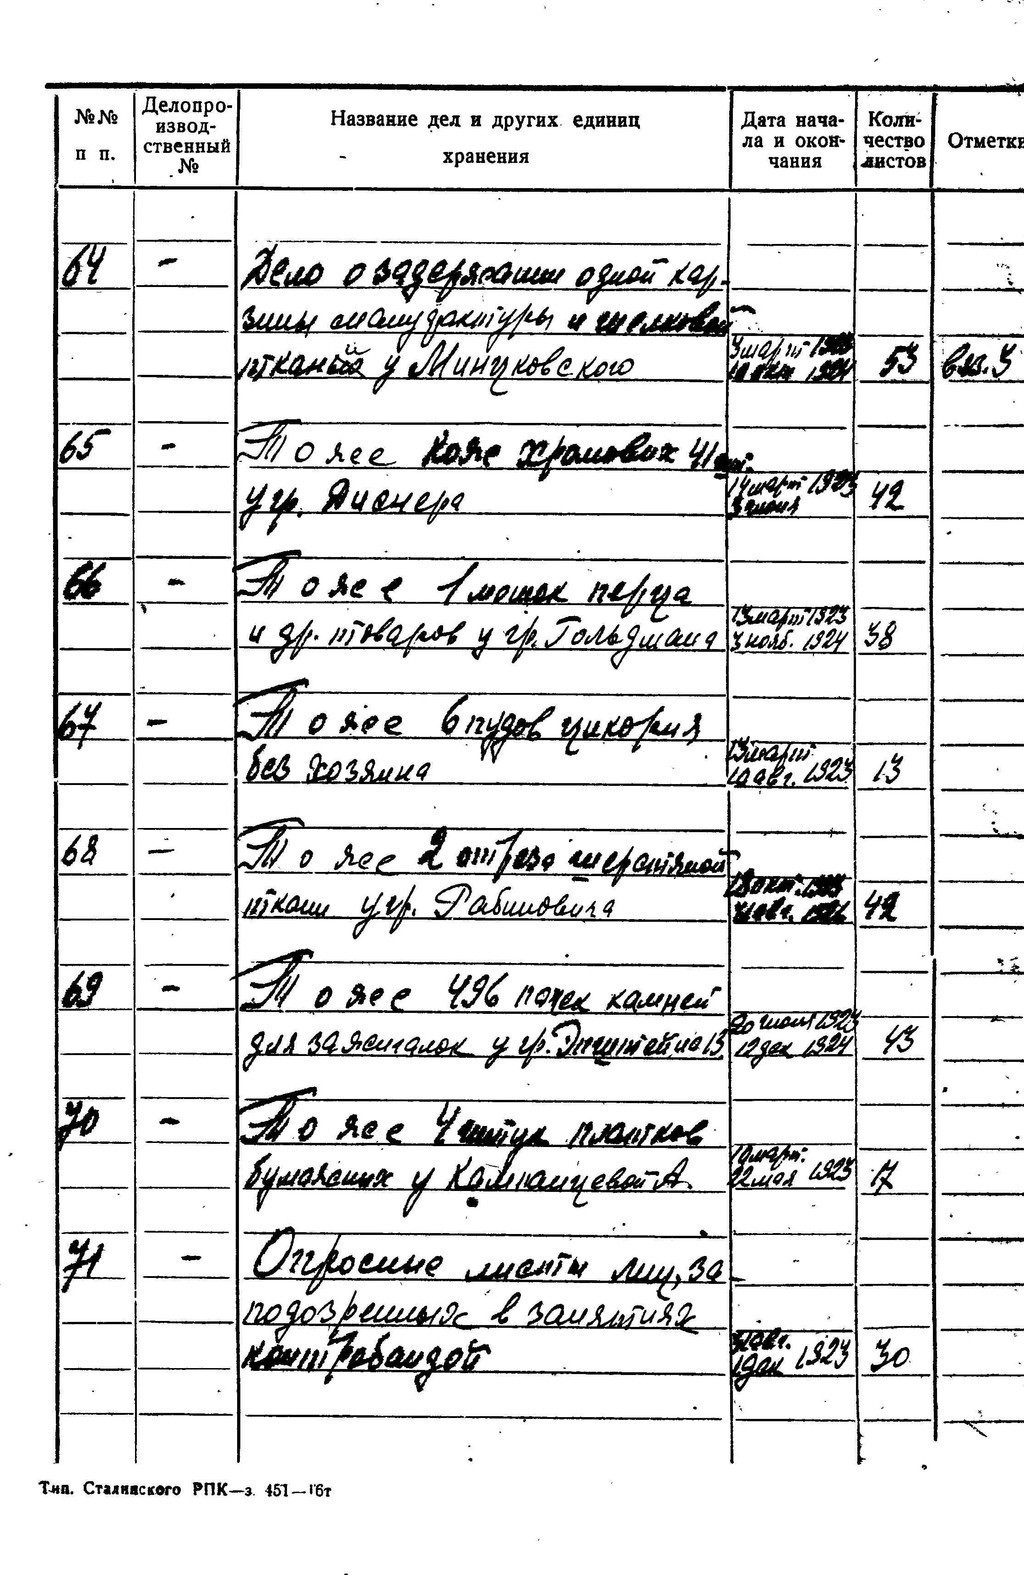 №№ п п.
Делопроизводственный №
Название дел и других единиц хранения
Дата начала и окончания
Количество листов
Отметки
64 - Дело о задержании одной кар-
зины с мануфактуры и шелковой
тканий у Минуковского 3 март 1923 10 окт 1924 53 вяз. 3
65 - То же кож хромовых 41 шт.
у гр. Диснера 14 март 1923 3 июня 42
66 - То же 1 мешок перца
и др. товаров у гр. Гольдмана 13 март 1923 3 нояб. 1924 38
67 - То же 6 пудов цикория
без хозяина 13 март 10 авг. 1923 13
68 - То же 2 отреза шерстяной
ткани у гр. Рабиновича 18 окт. 1923 авг. 42
69 - То же 496 пачек камней
для зажигалок у гр. Эпштейна 20 июля 1923 12 дек 1924 43
70 - То же 4 штук платков
бумажных у А. 10 март. 22 мая 1923 17
71 - Опросные листы лиц, за-
подозренных в занятиях
контрабандой авг. 1 дек 1923 30
Тип. Сталинского РПК—з. 451—16т